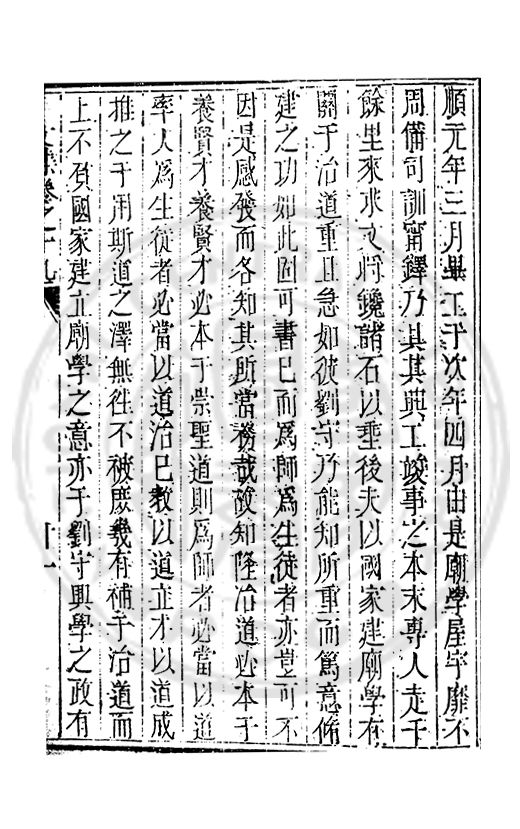 順元年三月畢工于次年四月由是廟學屋宇靡不
周備司訓甯鐸乃具其興工竣事之本末專人走千
餘里來求文將鑱諸石以垂後夫以國家建廟學有
關于治道重且急如彼劉守乃能知所重而篤意脩
建之功如此固可書已而爲師爲生徒者亦豈可不
因是感發而各知其所當務哉故知隆治道必本于
養賢才養賢才必本于崇聖道則爲師者必當以道
率人爲生徒者必當以道治己教以道立才以道成
推之于用斯道之澤無徃不被庶幾有補于治道而
上不負國家建立廟學之意亦于劉守興學之政有
文集卷之十九
十一